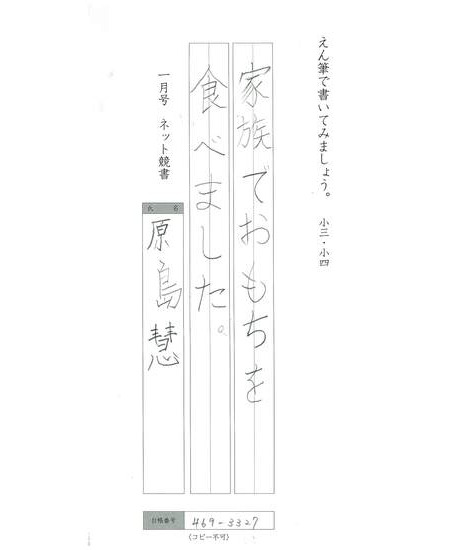 えん筆で書いてみましょう。 小三・小四
家族でおもちを
食べました。
一月号 ネット競書
氏名
原島慧
合格番号 469-3327
(コピー不可)